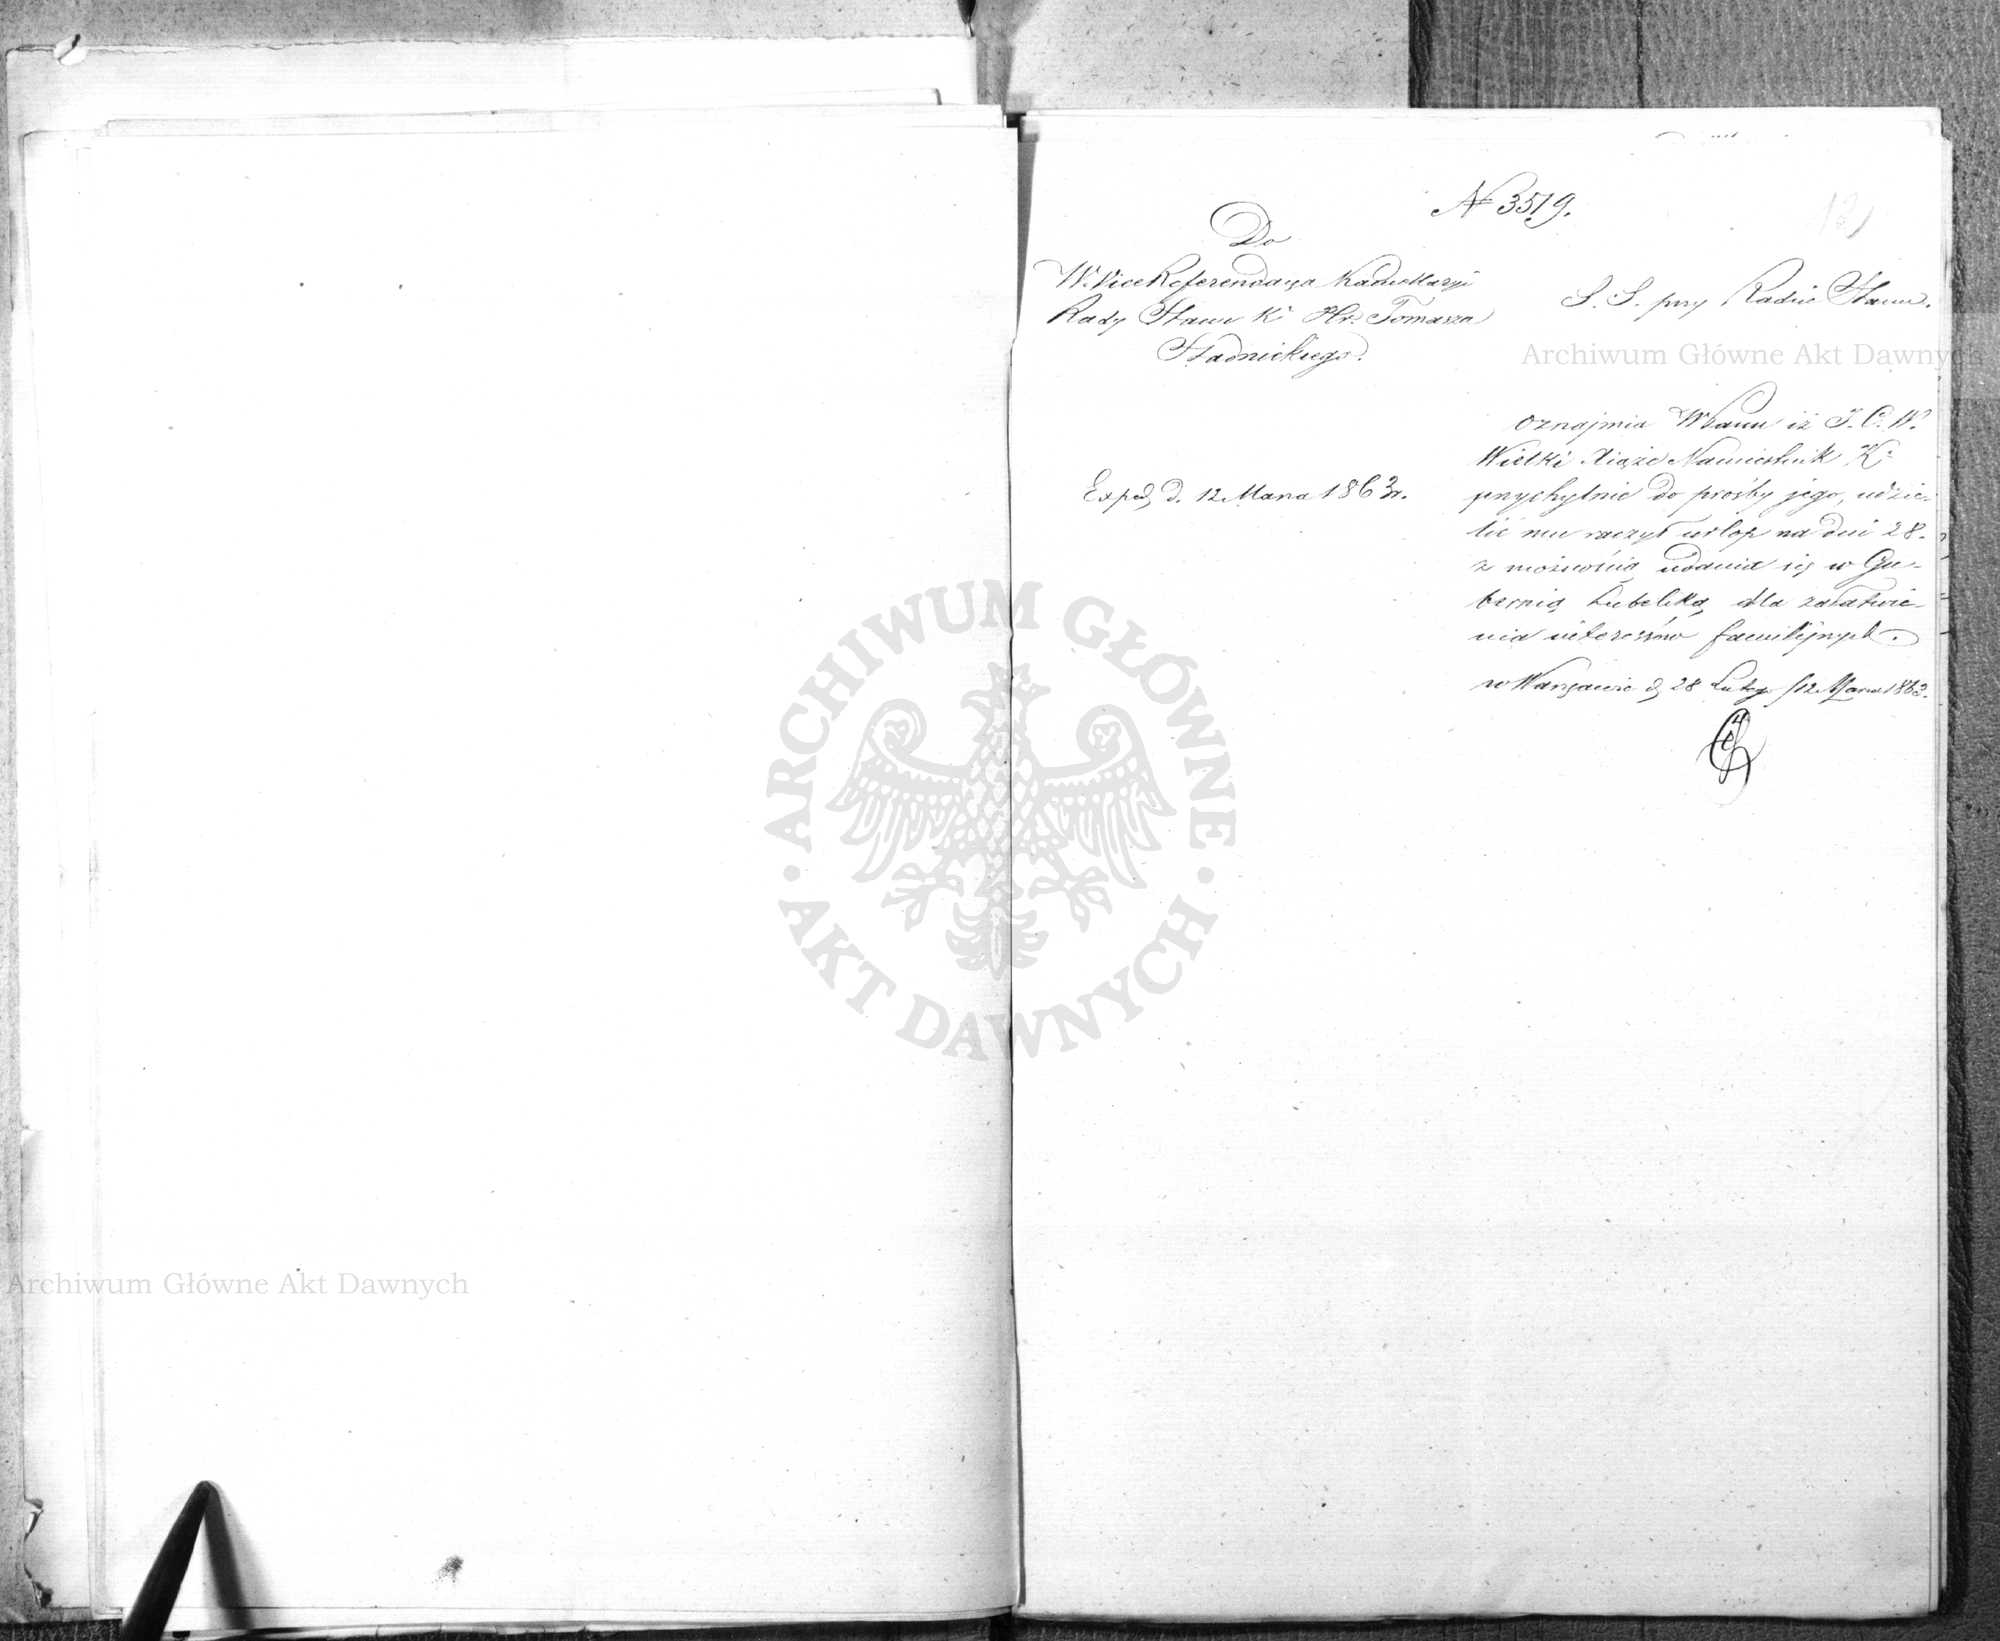 N 3519.
12
Do
W. Vice Referendarza Kancellaryi
Rady Stanu K. Hr. Tomasza
Stadnickiego.
Exped. d. 12 Marca 1863 r.
S. S. przy Radzie Stanu.
oznajmia WPanu iż J. C. W.
Wielki Xiąże Namiestnik K.
przychylnie do prośby jego, udzie-
lić mu raczył urlop na dni 28.
z możnością udania się w Gu-
bernią Lubelską, dla załatwie-
nia interessów familijnych.
w Warszawie d. 28 Lutego /12 Marca 1863.
Archiwum Główne Akt Dawnych
ARCHIWUM GŁÓWNE
AKT DAWNYCH
Archiwum Główne Akt Dawnych